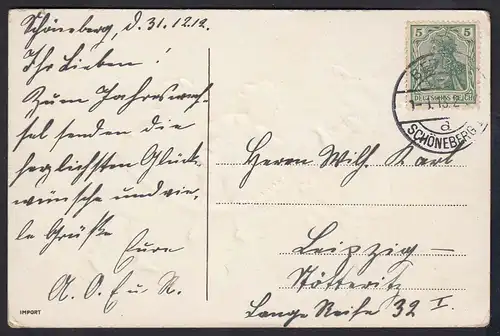 Schöneberg, d. 31.12.12.
Ihr Lieben!
Zum Jahreswech-
sel senden die
herzlichsten Glück-
wünsche und vie-
le Grüße
Eure
A. O. E u. R.
IMPORT
5 5
DEUTSCHES REICH
SCHÖNEBERG
Herrn Wilh. Karl
Leipzig-
Stötteritz
Lange Reihe 32 I.